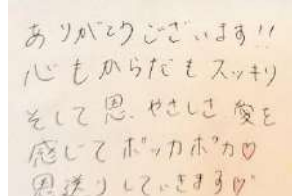 ありがとうございます!!
心もからだもスッキリ
そして恩、やさしさ、愛を
感じてポッカポカ♡
恩送りしていきます♡